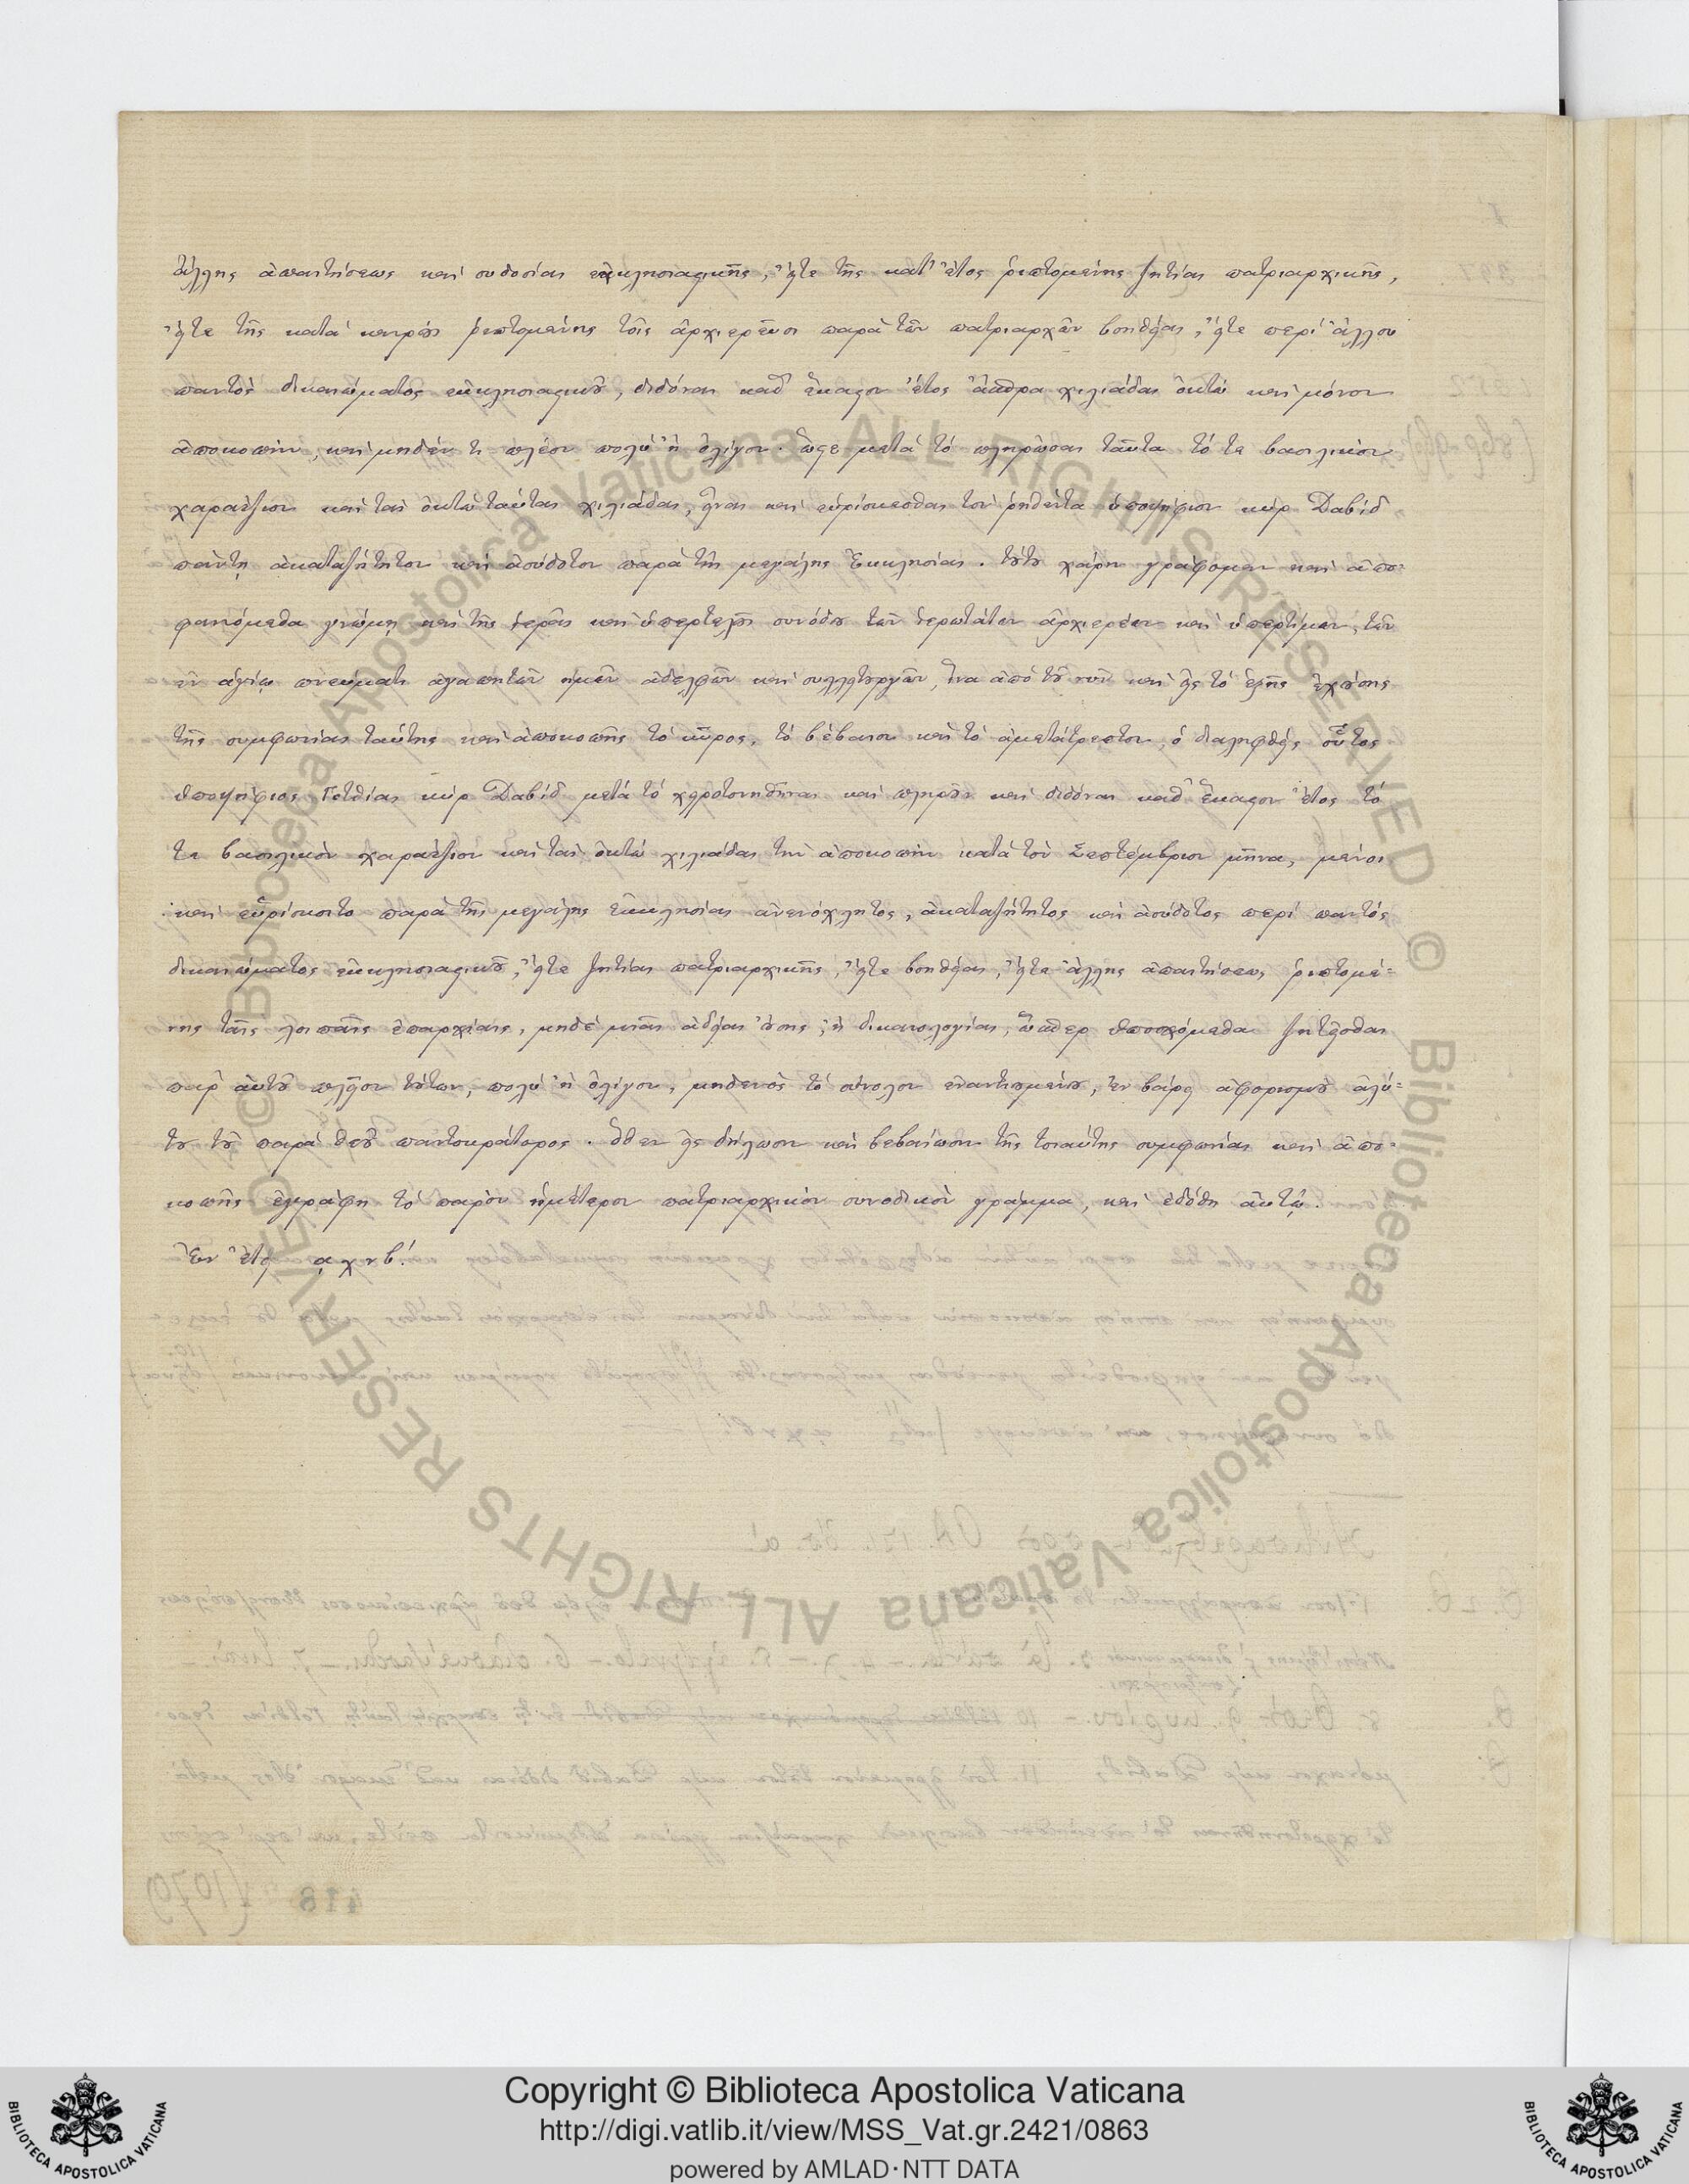 ἄλλης ἀπαιτήσεως καὶ συδοσίας ἐκκλησιαστικῆς, εἴτε τῆς κατ' ἔτος ῥιπτομένης ζητείας πατριαρχικῆς,
εἴτε τῆς κατὰ καιροὺς ῥιπτομένης τοῖς ἀρχιερεῦσι παρὰ τῶν πατριαρχῶν βοηθείας, εἴτε περὶ ἄλλου
παντὸς δικαιώματος ἐκκλησιαστικοῦ, διδόναι καθ' ἕκαστον ἔτος ἄσπρα χιλιάδας ὀκτὼ καὶ μόνον
ἀποκοπὴν, καὶ μηδέν τι πλέον πολὺ ἢ ὀλίγον. ὥστε μετὰ τὸ πληρῶσαι ταῦτα τό τε βασιλικὸν
χαράτζιον καὶ τὰς ὀκτὼ ταύτας χιλιάδας, εἶναι καὶ εὑρίσκεσθαι τὸν ῥηθέντα ὑποψήφιον κὺρ Δαβὶδ
πάντη ἀκαταζήτητον καὶ ἀσύδοτον παρὰ τῆς μεγάλης Ἐκκλησίας. τούτου χάριν γράφομεν καὶ ἀπο=
φαινόμεθα γνώμῃ καὶ τῆς ἱερᾶς καὶ ὑπερτελοῦς συνόδου τῶν ἱερωτάτων ἀρχιερέων καὶ ὑπερτίμων, τῶν
ἐν ἁγίῳ πνεύματι ἀγαπητῶν ἡμῶν ἀδελφῶν καὶ συλλειτουργῶν, ἵνα ἀπὸ τοῦ νῦν καὶ εἰς τὸ ἑξῆς ἐχούσης
τῆς συμφωνίας ταύτης καὶ ἀποκοπῆς τὸ κῦρος, τὸ βέβαιον καὶ τὸ ἀμετάτρεπτον, ὁ διαληφθεὶς οὗτος
ὑποψήφιος Γοτθίας κὺρ Δαβὶδ μετὰ τὸ χειροτονηθῆναι καὶ πληροῖ καὶ διδόναι καθ' ἕκαστον ἔτος τό
τε βασιλικὸν χαράτζιον καὶ τὰς ὀκτὼ χιλιάδας τὴν ἀποκοπὴν κατὰ τὸν Σεπτέμβριον μῆνα, μένοι
καὶ εὑρίσκοιτο παρὰ τῆς μεγάλης ἐκκλησίας ἀνενόχλητος, ἀκαταζήτητος καὶ ἀσύδοτος περὶ παντὸς
δικαιώματος ἐκκλησιαστικοῦ, εἴτε ζητείας πατριαρχικῆς, εἴτε βοηθείας, εἴτε ἄλλης ἀπαιτήσεως ῥιπτομέ=
νης ταῖς λοιπαῖς ἐπαρχίαις, μηδὲ μιᾶς ἀδείας οὔσης, ἢ δικαιολογίας, ᾧπερ ὑποσχόμεθα ζητεῖσθαι
παρ' αὐτοῦ πλεῖον τούτων, πολὺ ἢ ὀλίγον, μηδενὸς τὸ σύνολον ἐναντιουμένου, ἐν βάρει ἀφορισμοῦ ἀλύ=
του τοῦ παρὰ θεοῦ παντοκράτορος. ὅθεν εἰς δήλωσιν καὶ βεβαίωσιν τῆς τοιαύτης συμφωνίας καὶ ἀπο=
κοπῆς ἐγράφη τὸ παρὸν ἡμέτερον πατριαρχικὸν συνοδικὸν γράμμα, καὶ ἐδόθη αὐτῷ.
Ἐν ἔτει ͵αχνβ΄.
418
Copyright © Biblioteca Apostolica Vaticana
http://digi.vatlib.it/view/MSS_Vat.gr.2421/0863
powered by AMLAD·NTT DATA